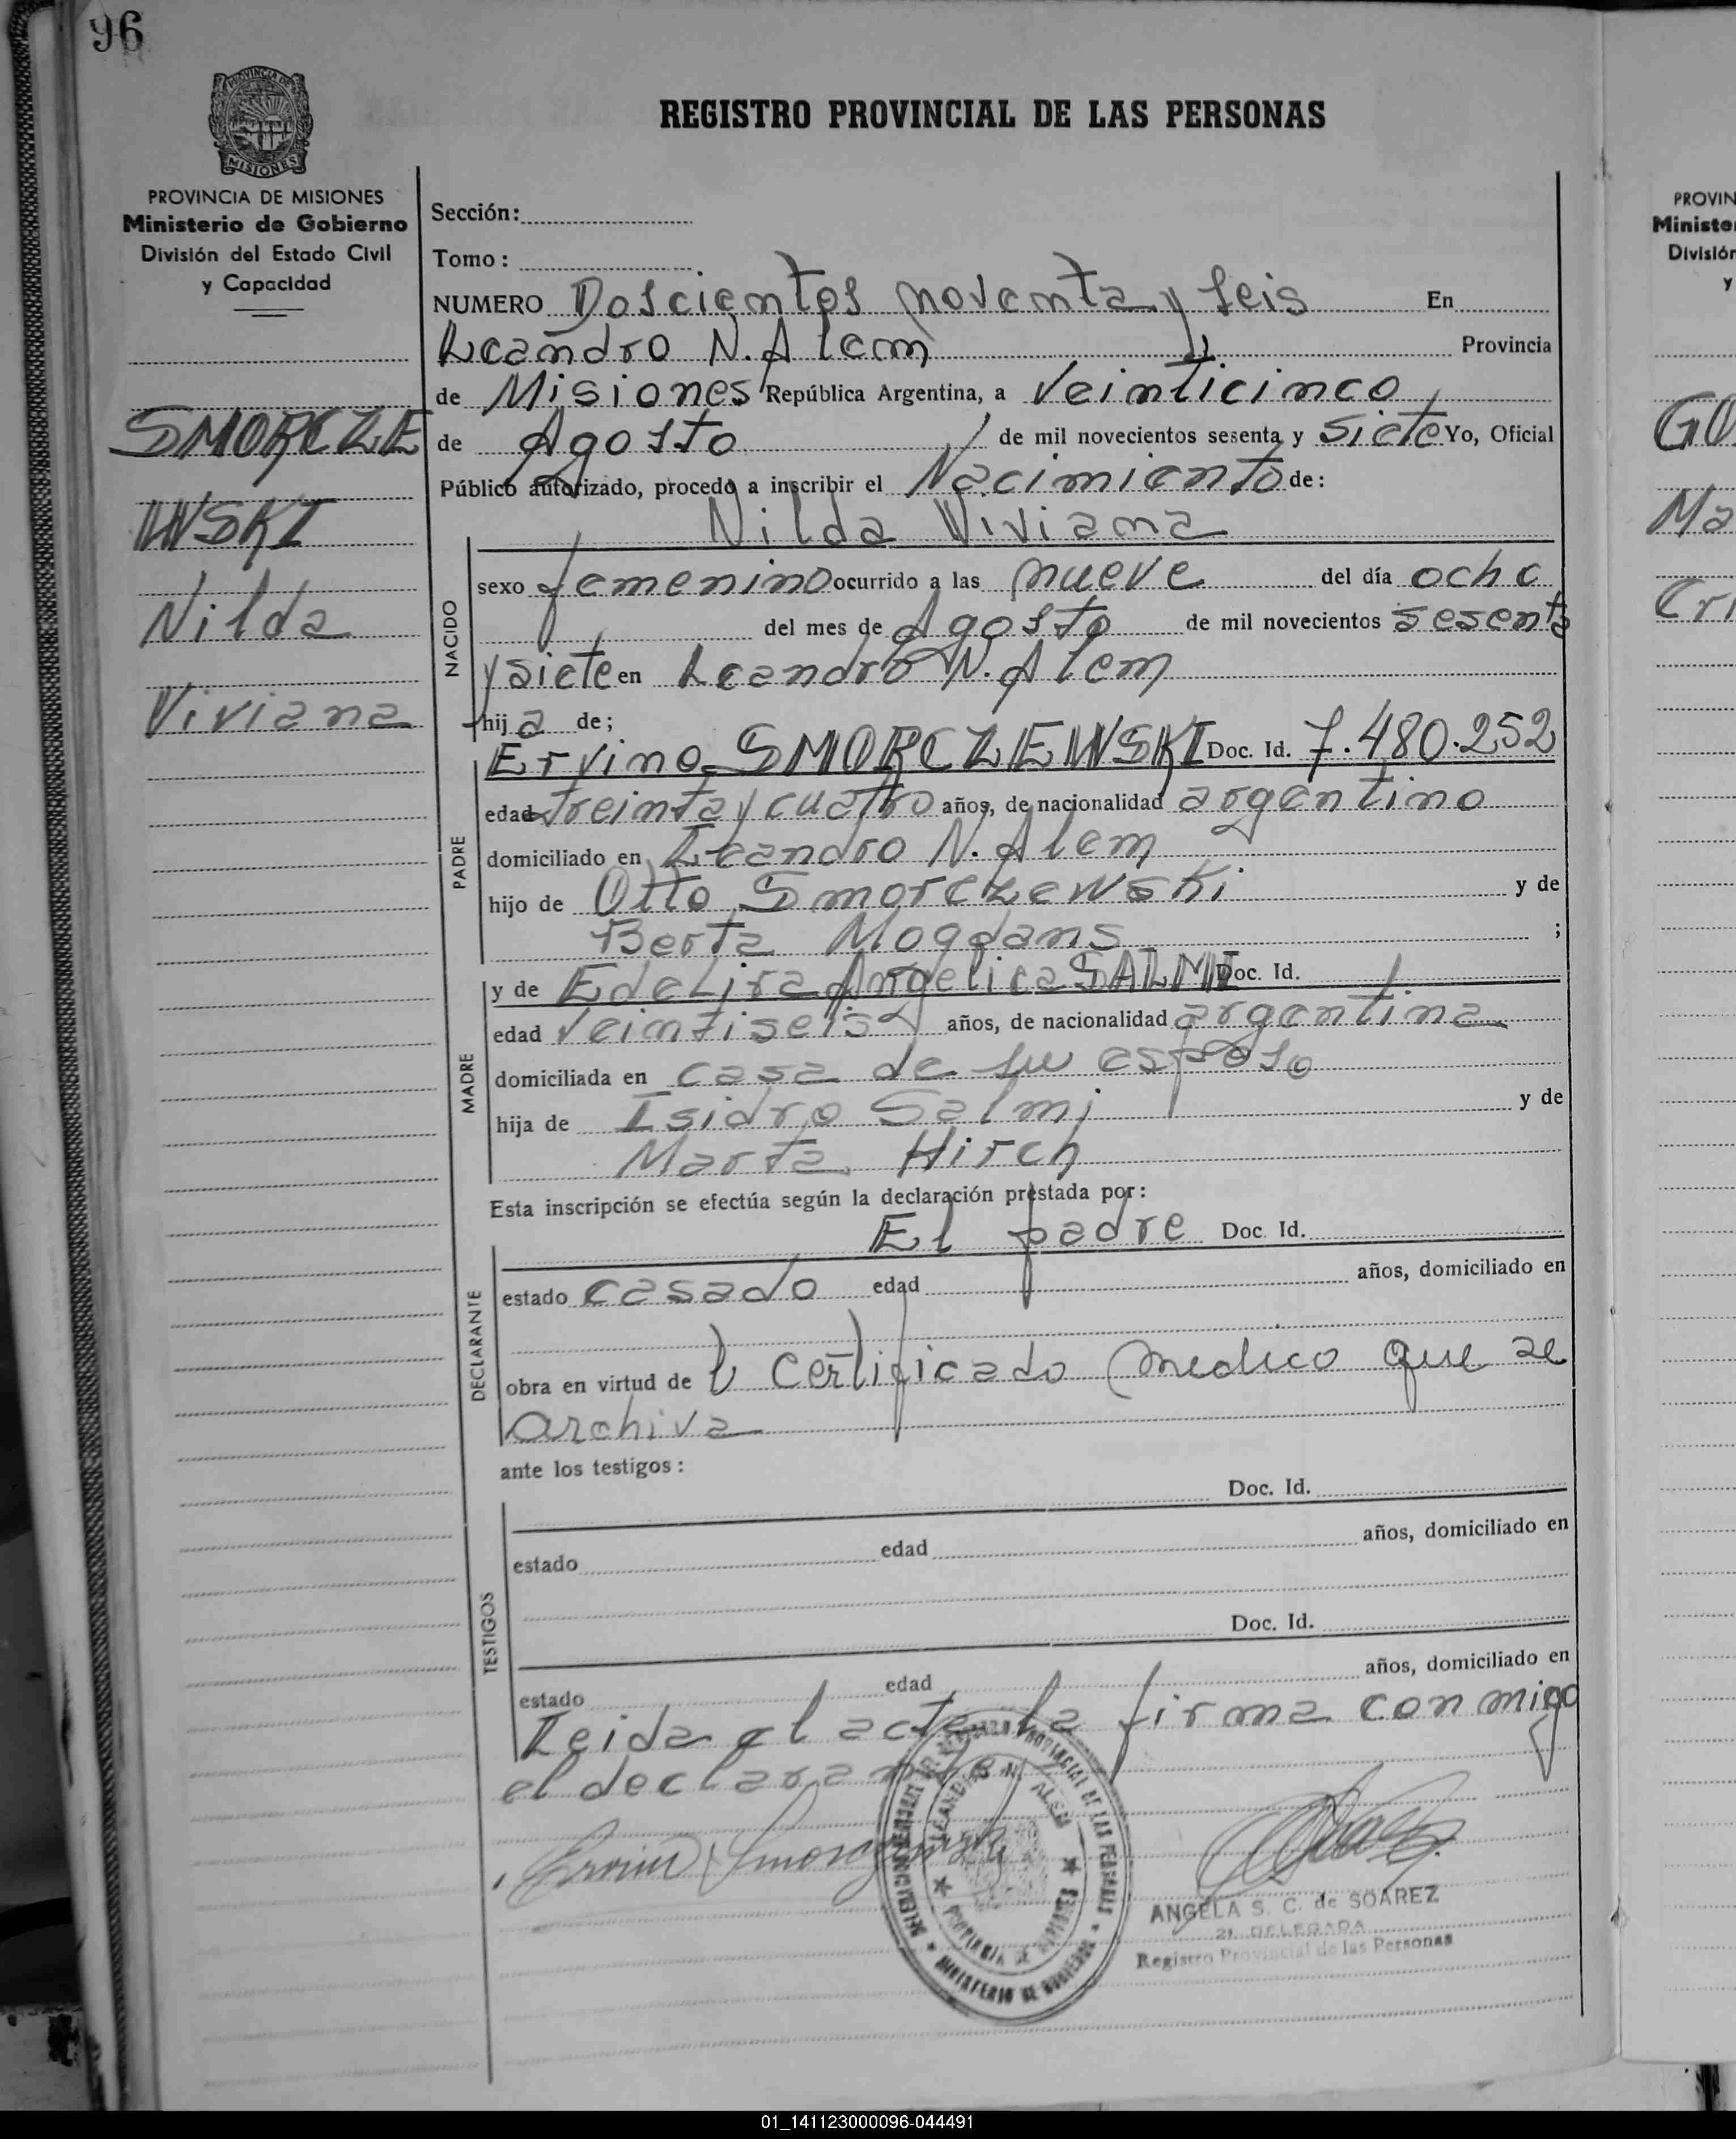 96
PROVINCIA DE
MISIONES
REGISTRO PROVINCIAL DE LAS PERSONAS
PROVINCIA DE MISIONES
Ministerio de Gobierno
División del Estado Civil
y Capacidad
SMORCZE
WSKI
Nilda
Viviana
Sección:
Tomo:
NUMERO Doscientos noventa y seis En
Leandro N. Alem Provincia
de Misiones República Argentina, a veinticinco
de Agosto de mil novecientos sesenta y siete Yo, Oficial
Público autorizado, procedo a inscribir el Nacimiento de:
Nilda Viviana
NACIDO
sexo femenino ocurrido a las nueve del día ocho
del mes de Agosto de mil novecientos sesenta
y siete en Leandro N. Alem
hija de;
PADRE
Ervino SMORCZEWSKI Doc. Id. 7.480.252
edad treinta y cuatro años, de nacionalidad argentino
domiciliado en Leandro N. Alem
hijo de Otto Smorczewski y de
Berta Mogdans ;
MADRE
y de Edelira Angelica SALMI Doc. Id.
edad veintiseis años, de nacionalidad argentina
domiciliada en casa de su esposo
hija de Isidro Salmi y de
Marta Hirch
Esta inscripción se efectúa según la declaración prestada por:
DECLARANTE
El padre Doc. Id.
estado casado edad años, domiciliado en
obra en virtud de l certificado medico que se
archiva
ante los testigos:
TESTIGOS
Doc. Id.
estado edad años, domiciliado en
Doc. Id.
estado edad años, domiciliado en
Leida el acta la firma conmigo
el declarante
Ervino Smorczewski
PROVINCIAL DE LAS PERSONAS
LEANDRO N. ALEM
PROVINCIA DE MISIONES
MINISTERIO DE GOBIERNO
ANGELA S. C. de SOAREZ
DELEGADA
Registro Provincial de las Personas
PROVIN
Ministe
División
y
GO
Ma
Cri
01_141123000096-044491